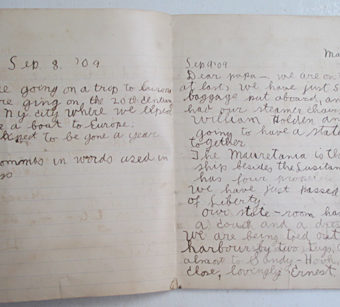 Sep. 8. '09
going on a trip to
going on, the 20th Century
N.y city where we
a boat to Europe.
expect to be gone a year
comments in words used in
Ma
Sep 9 '09
Dear papa - we are on
at last, we have just
baggage put aboard, an
had our steamer chair
William Holden an
going to have a state
together
The Mauretania is th
ship besides the Lusitan
has four
We have just passed
of Liberty.
our state-room ha
a couch and a dres
We are being tied out
harbour by two tugs,
almost to Sandy-Hook
close, lovingly Ernest.